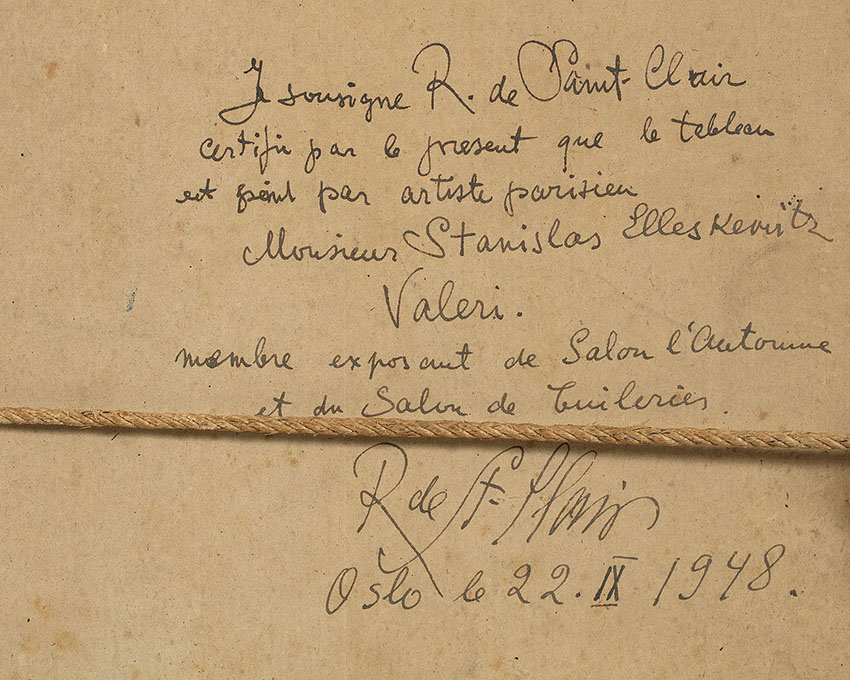 Je sousigne R. de Saint-Clair
certifie par le present que le tableau
est peint par artiste parisien
Monsieur Stanislas Elleskewitz
Valeri.
membre exposant de Salon l'Automne
et du Salon de Tuileries.
R de St Clair
Oslo le 22. IX 1948.